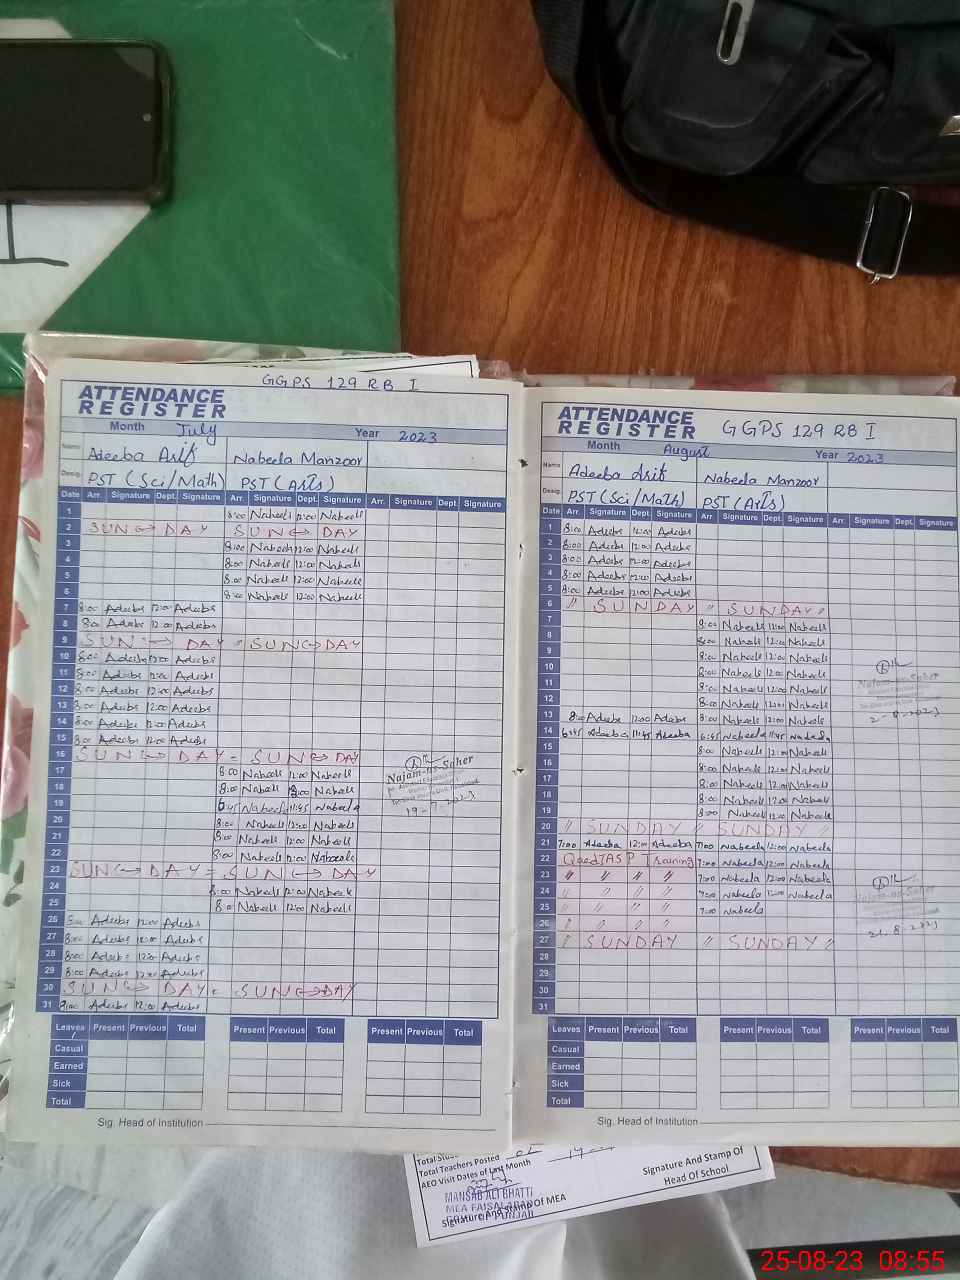 GGPS 129 RB I
ATTENDANCE
REGISTER
Month July Year 2023
Name Adeeba Arif Nabeela Manzoor
Desig. PST (Sci/Math) PST (Arts)
Date Arr. Signature Dept. Signature Arr. Signature Dept. Signature Arr. Signature Dept. Signature
1 8:00 Nabeela 12:00 Nabeela
2 SUN ↔ DAY SUN ↔ DAY
3 8:00 Nabeela 12:00 Nabeela
4 8:00 Nabeela 12:00 Nabeela
5 8:00 Nabeela 12:00 Nabeela
6 8:00 Nabeela 12:00 Nabeela
7 8:00 Adeeba 12:00 Adeeba
8 8:00 Adeeba 12:00 Adeeba
9 SUN ↔ DAY = SUN ↔ DAY
10 8:00 Adeeba 12:00 Adeeba
11 8:00 Adeeba 12:00 Adeeba
12 8:00 Adeeba 12:00 Adeeba
13 8:00 Adeeba 12:00 Adeeba
14 8:00 Adeeba 12:00 Adeeba
15 8:00 Adeeba 12:00 Adeeba
16 SUN ↔ DAY = SUN ↔ DAY
17 8:00 Nabeela 12:00 Nabeela
18 8:00 Nabeela 12:00 Nabeela
19 6:45 Nabeela 11:45 Nabeela
20 8:00 Nabeela 12:00 Nabeela
21 8:00 Nabeela 12:00 Nabeela
22 8:00 Nabeela 12:00 Nabeela
23 SUN ↔ DAY = SUN ↔ DAY
24 8:00 Nabeela 12:00 Nabeela
25 8:00 Nabeela 12:00 Nabeela
26 8:00 Adeeba 12:00 Adeeba
27 8:00 Adeeba 12:00 Adeeba
28 8:00 Adeeba 12:00 Adeeba
29 8:00 Adeeba 12:00 Adeeba
30 SUN ↔ DAY = SUN ↔ DAY
31 8:00 Adeeba 12:00 Adeeba
Najam-us-Saher
19-7-2023
Leaves Present Previous Total Present Previous Total Present Previous Total
Casual
Earned
Sick
Total
Sig. Head of Institution
ATTENDANCE
REGISTER GGPS 129 RB I
Month August Year 2023
Name Adeeba Arif Nabeela Manzoor
Desig. PST (Sci/Math) PST (Arts)
Date Arr. Signature Dept. Signature Arr. Signature Dept. Signature Arr. Signature Dept. Signature
1 8:00 Adeeba 12:00 Adeeba
2 8:00 Adeeba 12:00 Adeeba
3 8:00 Adeeba 12:00 Adeeba
4 8:00 Adeeba 12:00 Adeeba
5 8:00 Adeeba 12:00 Adeeba
6 " SUNDAY " SUNDAY "
7 8:00 Nabeela 12:00 Nabeela
8 8:00 Nabeela 12:00 Nabeela
9 8:00 Nabeela 12:00 Nabeela
10 8:00 Nabeela 12:00 Nabeela
11 8:00 Nabeela 12:00 Nabeela
12 8:00 Nabeela 12:00 Nabeela
13 8:00 Adeeba 12:00 Adeeba 8:00 Nabeela 12:00 Nabeela
14 6:45 Adeeba 11:45 Adeeba 6:45 Nabeela 11:45 Nabeela
15 8:00 Nabeela 12:00 Nabeela
16 8:00 Nabeela 12:00 Nabeela
17 8:00 Nabeela 12:00 Nabeela
18 8:00 Nabeela 12:00 Nabeela
19 8:00 Nabeela 12:00 Nabeela
20 " SUNDAY " SUNDAY "
21 7:00 Adeeba 12:00 Adeeba 7:00 Nabeela 12:00 Nabeela
22 Qaed TASPT Training 7:00 Nabeela 12:00 Nabeela
23 " " " " 7:00 Nabeela 12:00 Nabeela
24 " " " " 7:00 Nabeela 12:00 Nabeela
25 " " " " 7:00 Nabeela
26 " " " "
27 " SUNDAY " SUNDAY "
28
29
30
31
Najam-us-Saher
Najam-us-Saher
21.8.2023
Leaves Present Previous Total Present Previous Total Present Previous Total
Casual
Earned
Sick
Total
Sig. Head of Institution
Total Teachers Posted
AEO Visit Dates of Last Month
MANSAB ALI BHATTI
MEA FAISALABAD
Signature And Stamp Of MEA
Signature And Stamp Of
Head Of School
25-08-23 08:55